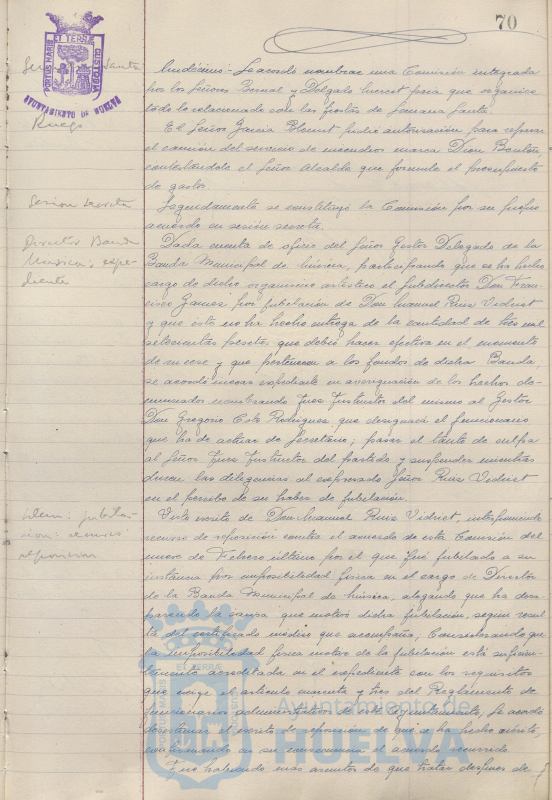 70
PORTUS MARIS ET TERRÆ CUSTODIA
AYUNTAMIENTO DE HUELVA
Santa
Ruego
Sesión secreta
Director Banda
Música: expe-
diente
Idem: jubila-
ción:
reposición
Undécimo: Se acordó nombrar una Comisión integrada
por los Señores Bernal y Delgado para que organice
todo lo relacionado con las fiestas de Semana Santa.
El Señor García pidió autorización para reparar
el camión del servicio de incendios marca Dion Boutón,
contestándole el Señor Alcalde que formule el presupuesto
de gastos.
Seguidamente se constituyó la Comisión por su propio
acuerdo en sesión secreta.
Dada cuenta de oficio del Señor Gestor Delegado de la
Banda Municipal de música, participando que se ha hecho
cargo de dicho organismo artístico el Subdirector Don Fran-
cisco Games por jubilación de Don Manuel Ruiz Vidriet
y que éste no ha hecho entrega de la cantidad de tres mil
setecientas pesetas que debió hacer efectiva en el momento
de su cese y que pertenecen a los fondos de dicha Banda,
se acordó incoar expediente en averiguación de los hechos de-
nunciados nombrando Juez Instructor del mismo al Gestor
Don Gregorio Coto Rodríguez que designará el funcionario
que ha de actuar de Secretario; pasar el tanto de culpa
al Señor Juez Instructor del partido y suspender mientras
duren las diligencias al expresado Señor Ruiz Vidriet
en el percibo de su haber de jubilación.
Visto escrito de Don Manuel Ruiz Vidriet, interponiendo
recurso de reposición contra el acuerdo de esta Comisión del
nueve de Febrero último por el que fué jubilado a su
instancia por imposibilidad física en el cargo de Director
de la Banda Municipal de música, alegando que ha desa-
parecido la causa que motivó dicha jubilación, según resul-
ta del certificado médico que acompaña, Considerando que
la imposibilidad física motivo de la jubilación está suficien-
temente acreditada en el expediente con los requisitos
que exige el artículo cuarenta y tres del Reglamento de
funcionarios administrativos de este Ayuntamiento, se acordó
desestimar el escrito de reposición de que se ha hecho mérito,
confirmando en su consecuencia el acuerdo recurrido.
Y no habiendo más asuntos de que tratar después de
Ayuntamiento de
HUELVA